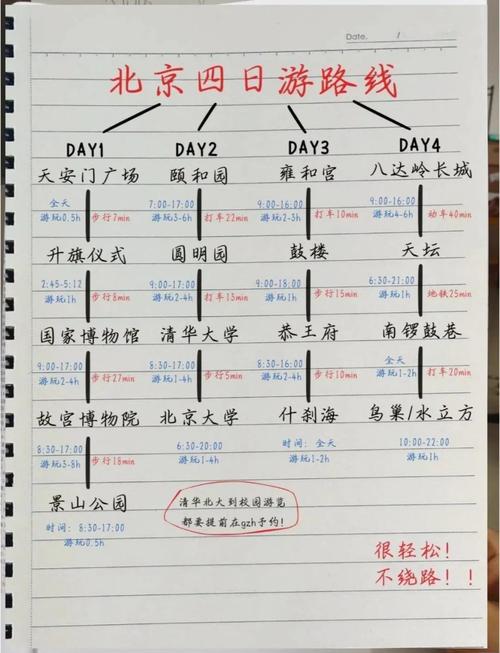 Date. /
北京四日游路线
DAY1 DAY2 DAY3 DAY4
天安门广场 颐和园 雍和宫 八达岭长城
全天 7:00-17:00 9:00-16:00 9:00-16:00
游玩0.5h 步行7min 游玩3-6h 打车22min 游玩2-3h 打车10min 游玩4-6h 动车40min
升旗仪式 圆明园 鼓楼 天坛
2:45-5:12 9:00-17:00 9:00-18:00 6:30-21:00
游玩1h 步行8min 游玩2-4h 打车13min 游玩1h 步行15min 游玩1h 地铁25min
国家博物馆 清华大学 恭王府 南锣鼓巷
9:00-17:00 8:30-17:00 8:30-16:00 全天
游玩2-4h 步行27min 游玩1-4h 步行5min 游玩2-3h 步行10min 游玩1-2h 打车20min
故宫博物院 北京大学 什刹海 鸟巢/水立方
8:30-17:00 6:30-20:00 时间：全天 10:00-22:00
游玩3-8h 步行18min 游玩1-4h 游玩1-2h 游玩1h
景山公园
时间：8:30-17:00
游玩0.5h
清华北大到校园游览
都要提前在gzh予约!
很轻松!
不绕路!!